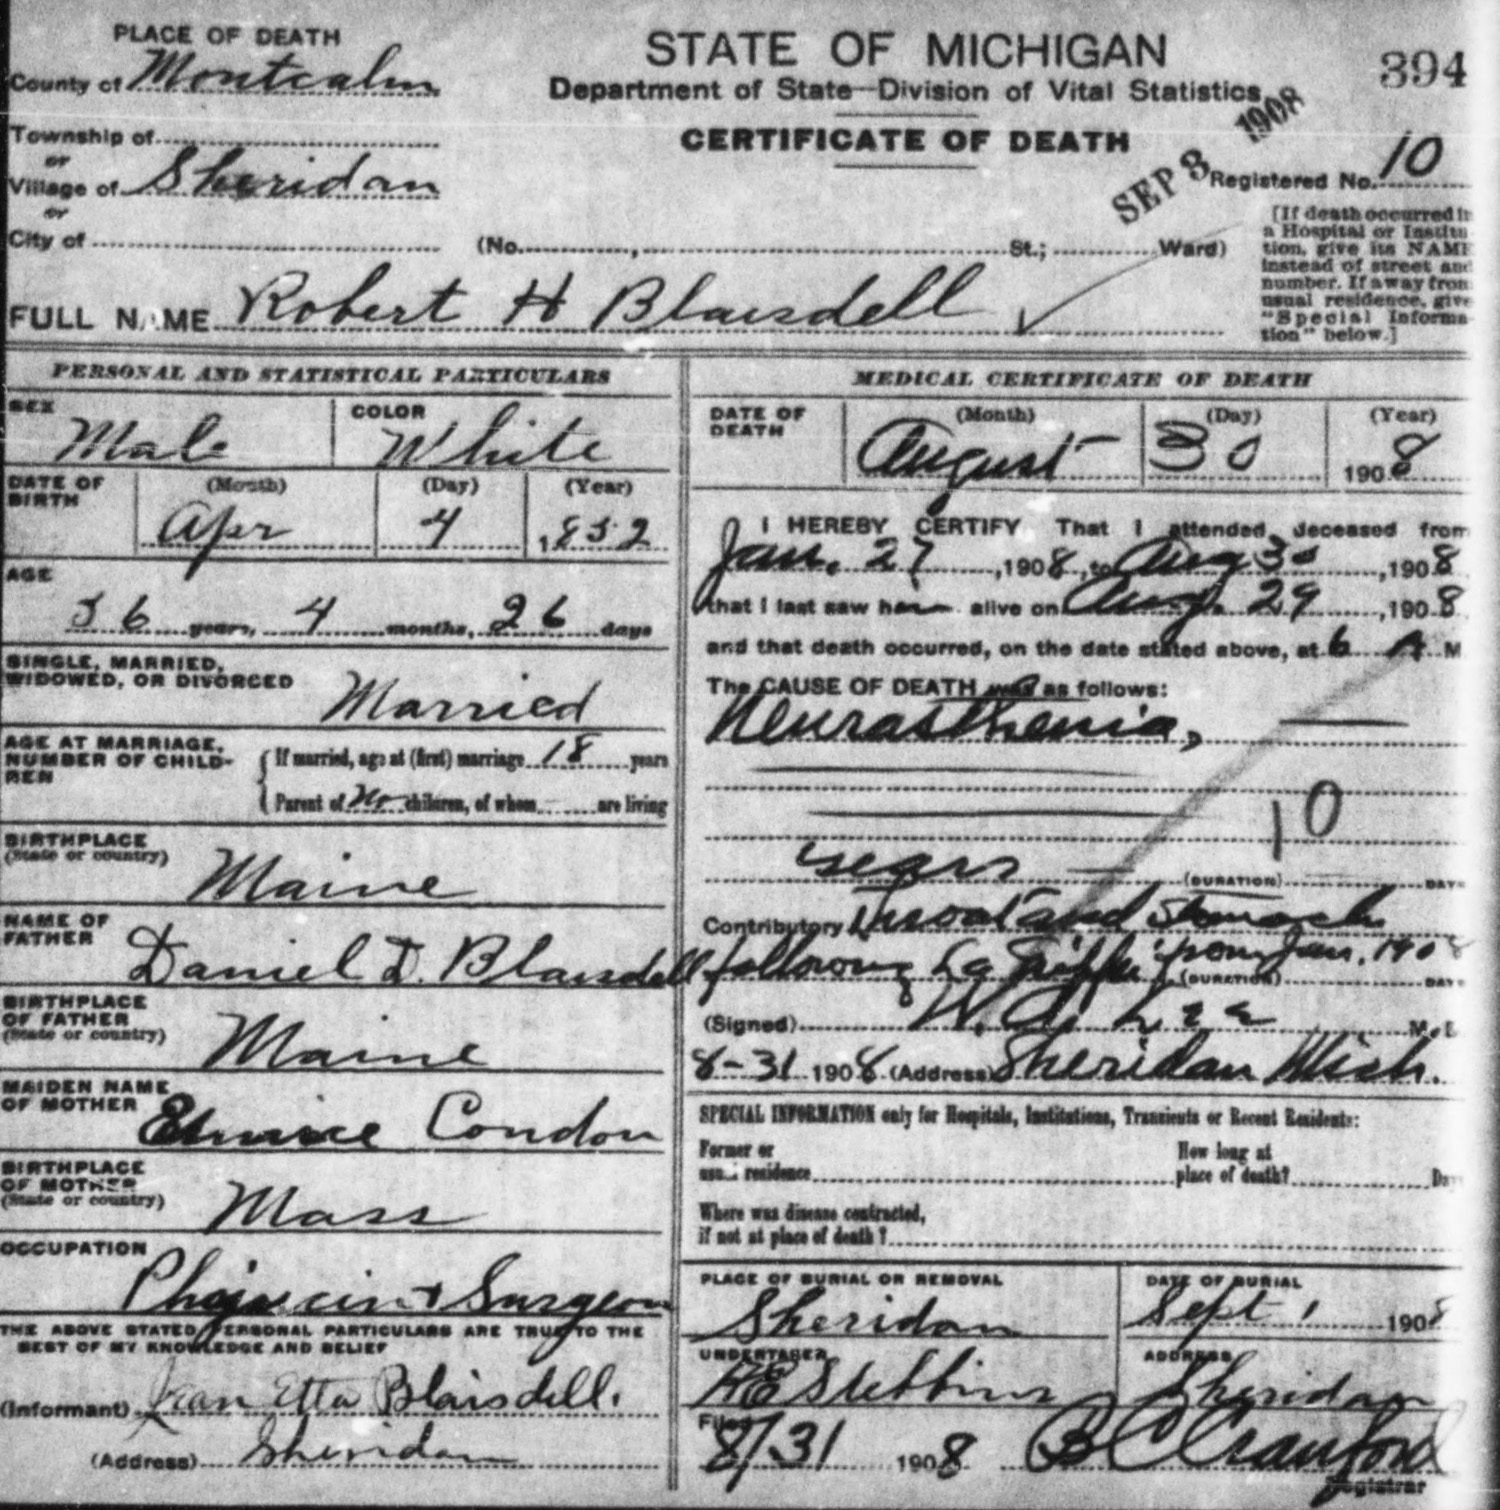 PLACE OF DEATH
County of Montcalm
Township of
or
Village of Sheridan
or
City of
STATE OF MICHIGAN
Department of State—Division of Vital Statistics
CERTIFICATE OF DEATH
394
SEP 3 1908
Registered No. 10
(No. , St.; Ward)
[If death occurred in
a Hospital or Institu
tion, give its NAME
instead of street and
number. If away from
usual residence, give
"Special Informa
tion" below.]
FULL NAME Robert H Blaisdell
PERSONAL AND STATISTICAL PARTICULARS
SEX
Male
COLOR
White
DATE OF
BIRTH
(Month) (Day) (Year)
Apr 4 1852
AGE
56 years, 4 months, 26 days
SINGLE, MARRIED,
WIDOWED, OR DIVORCED
Married
AGE AT MARRIAGE,
NUMBER OF CHILD-
REN
If married, age at (first) marriage 18 years
Parent of No children, of whom are living
BIRTHPLACE
(State or country)
Maine
NAME OF
FATHER
Daniel D. Blaisdell
BIRTHPLACE
OF FATHER
(State or country)
Maine
MAIDEN NAME
OF MOTHER
Condon
BIRTHPLACE
OF MOTHER
(State or country)
Mass
OCCUPATION
Surgeon
THE ABOVE STATED PERSONAL PARTICULARS ARE TRUE TO THE
BEST OF MY KNOWLEDGE AND BELIEF
(Informant) Etta Blaisdell.
(Address) Sheridan
MEDICAL CERTIFICATE OF DEATH
DATE OF
DEATH
(Month) (Day) (Year)
August 30 1908
I HEREBY CERTIFY That I attended deceased from
Jan. 27, 1908, to Aug 30, 1908
that I last saw him alive on Aug. 29, 1908
and that death occurred, on the date stated above, at 6 A M
The CAUSE OF DEATH was as follows:
Neurasthenia,
10
years
(DURATION) DAYS
Contributory Throat and Stomach
following La Grippe from Jan. 1908
(DURATION) DAYS
(Signed) W. A. Lee M.D
8-31 1908 (Address) Sheridan Mich.
SPECIAL INFORMATION only for Hospitals, Institutions, Transients or Recent Residents:
Former or
usual residence
How long at
place of death? Days
Where was disease contracted,
if not at place of death?
PLACE OF BURIAL OR REMOVAL
Sheridan
DATE OF BURIAL
Sept 1 1908
UNDERTAKER
Stebbins
ADDRESS
Sheridan
Filed
8/31 1908 B C Cranford
Registrar